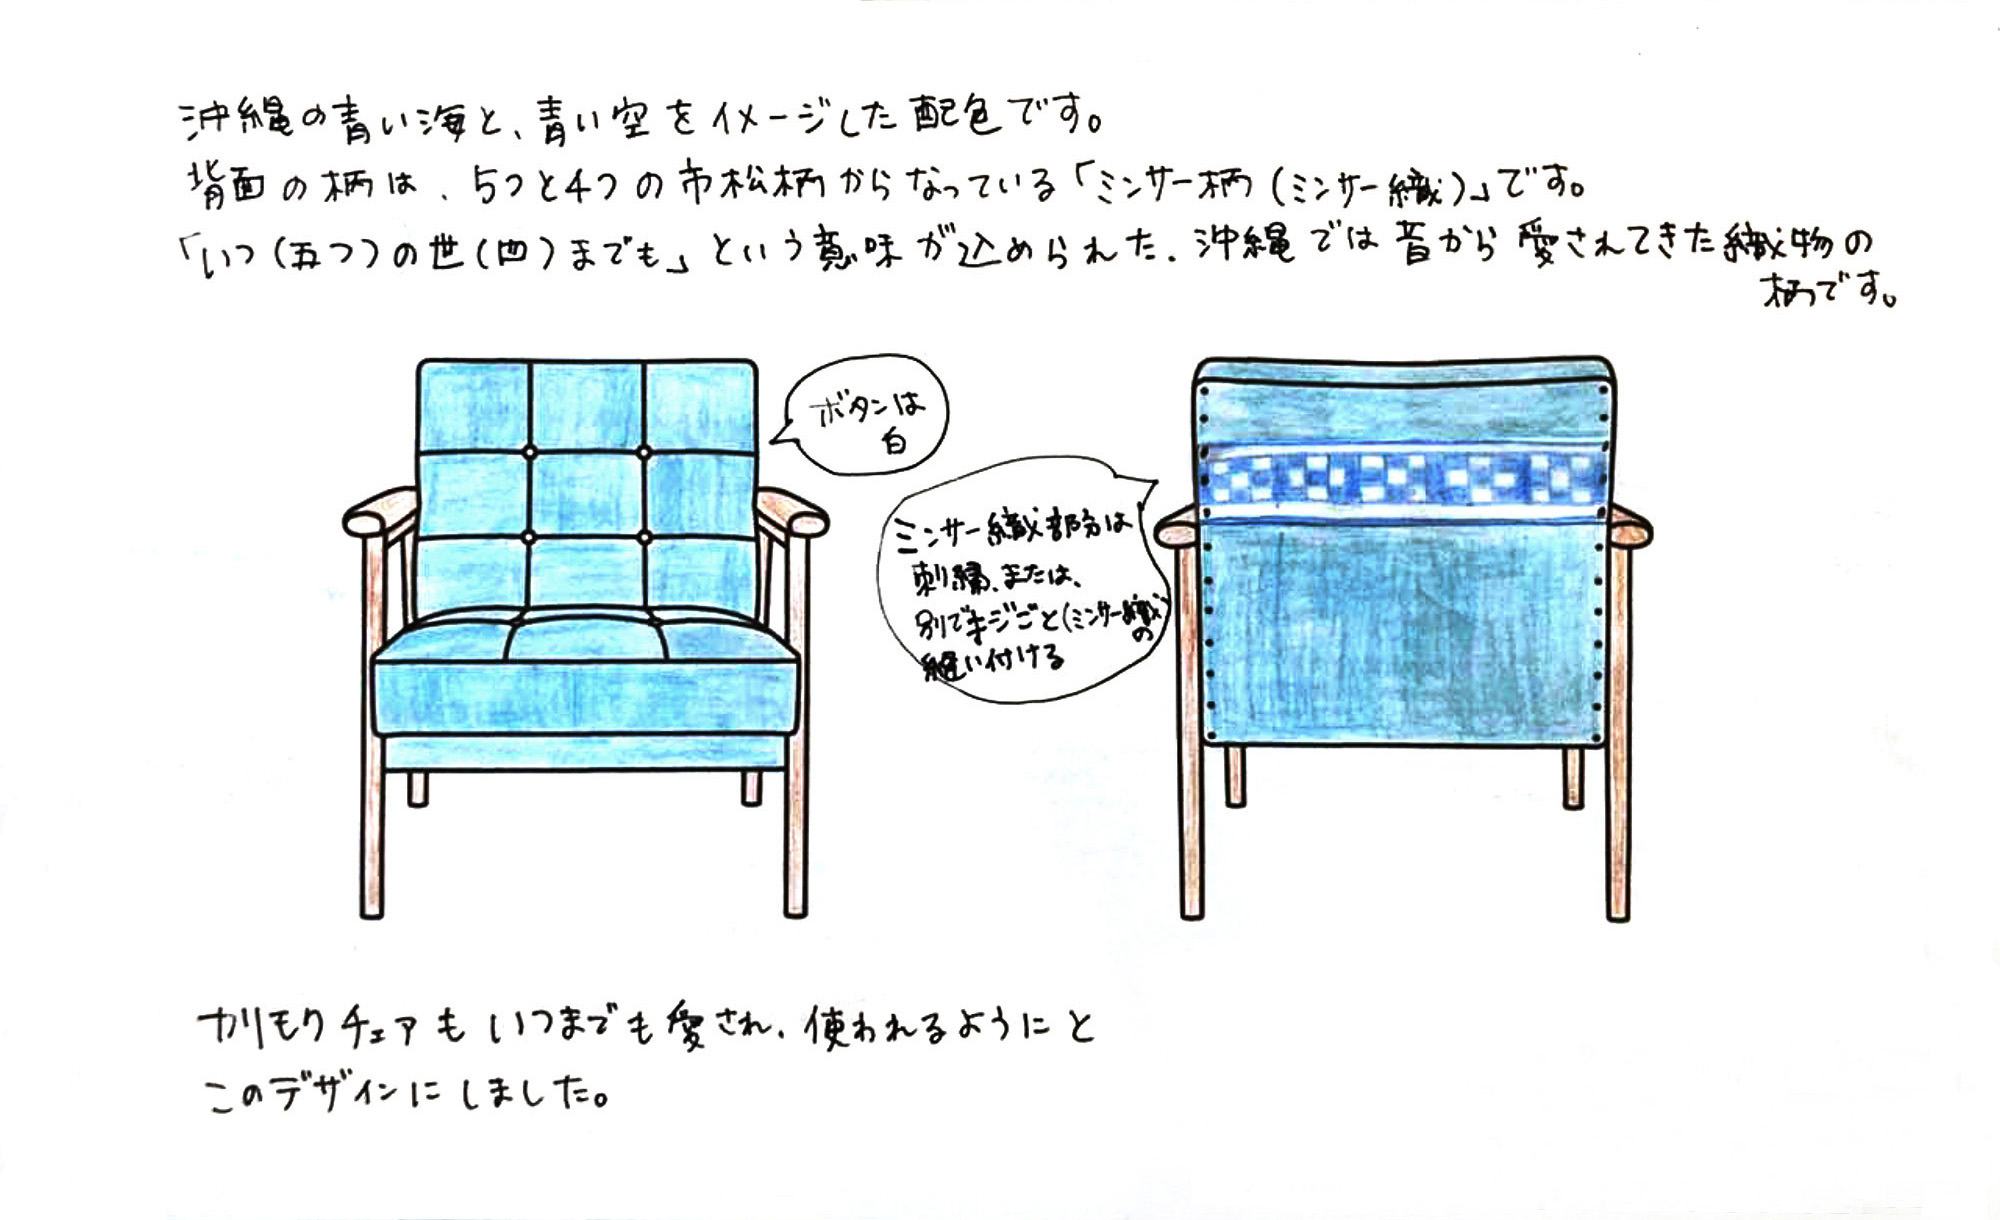 沖縄の青い海と、青い空をイメージした配色です。
背面の柄は、5つと4つの市松柄からなっている「ミンサー柄(ミンサー織)」です。
「いつ(五つ)の世(四)までも」という意味が込められた、沖縄では昔から愛されてきた織物の
柄です。
ボタンは
白
ミンサー織部分は
刺繍、または、
別でキジごと(ミンサー織の
縫い付ける
カリモクチェアもいつまでも愛され、使われるようにと
このデザインにしました。